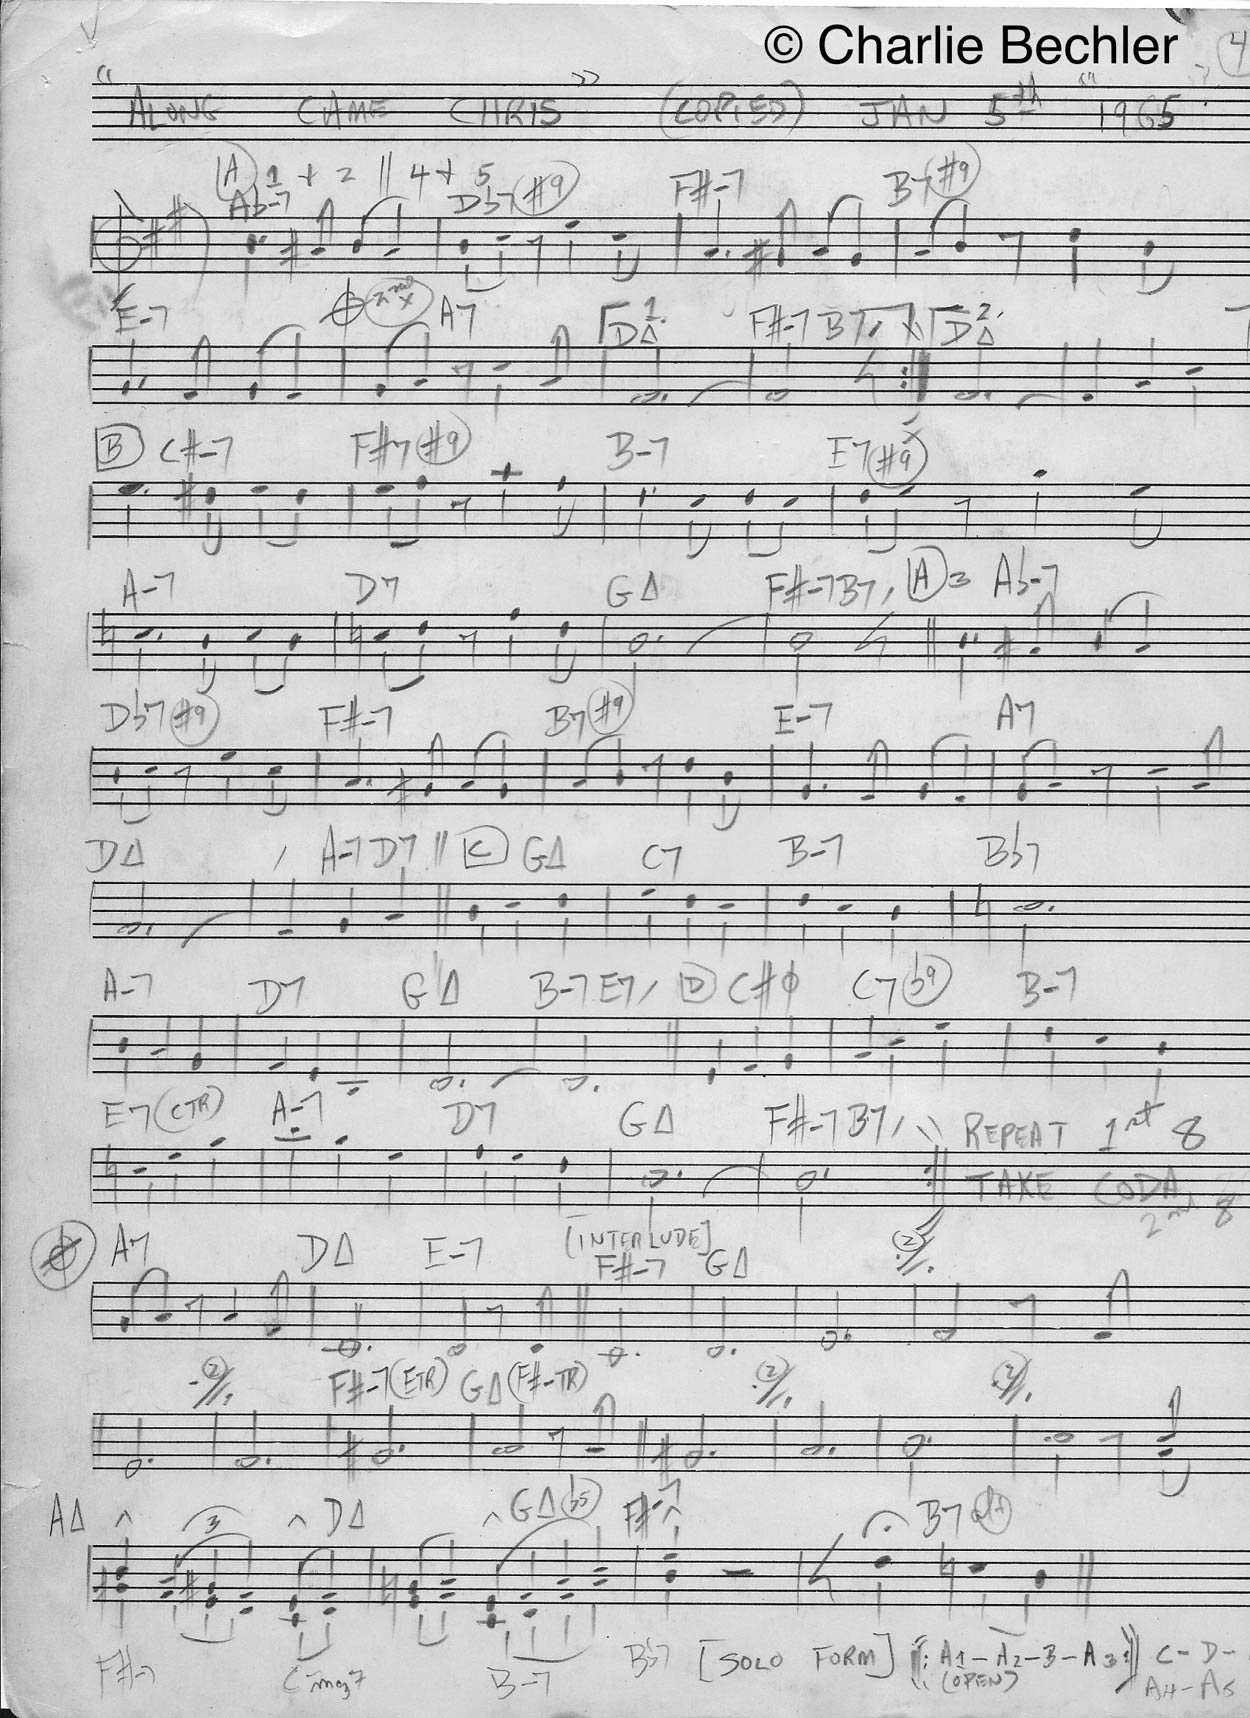 © Charlie Bechler
4
"ALONG CAME CHRIS" (COPIED) JAN 5th "1965"
A 1 + 2 || 4 + 5
Ab-7 Db7(#9) F#-7 B7(#9)
E-7 2nd X A7 1. DΔ F#-7 B7 2. DΔ
B C#-7 F#7(#9) B-7 E7(#9)
A-7 D7 GΔ F#-7 B7 A 3 Ab-7
Db7(#9) F#-7 B7(#9) E-7 A7
DΔ A-7 D7 C GΔ C7 B-7 Bb7
A-7 D7 GΔ B-7 E7 D C#ϕ C7(b9) B-7
E7(CTR) A-7 D7 GΔ F#-7 B7 REPEAT 1st 8
TAKE CODA
2nd 8
A7 DΔ E-7 [INTERLUDE] F#-7 GΔ 2
2 F#-7(ETR) GΔ(F#-TR) 2 2
AΔ 3 DΔ GΔ(b5) F#-7 B7 alt
F#-7 Cmaj7 B-7 Bb7 [SOLO FORM] ||: A1-A2-B-A3 :|| C-D-
(OPEN) A4-A5